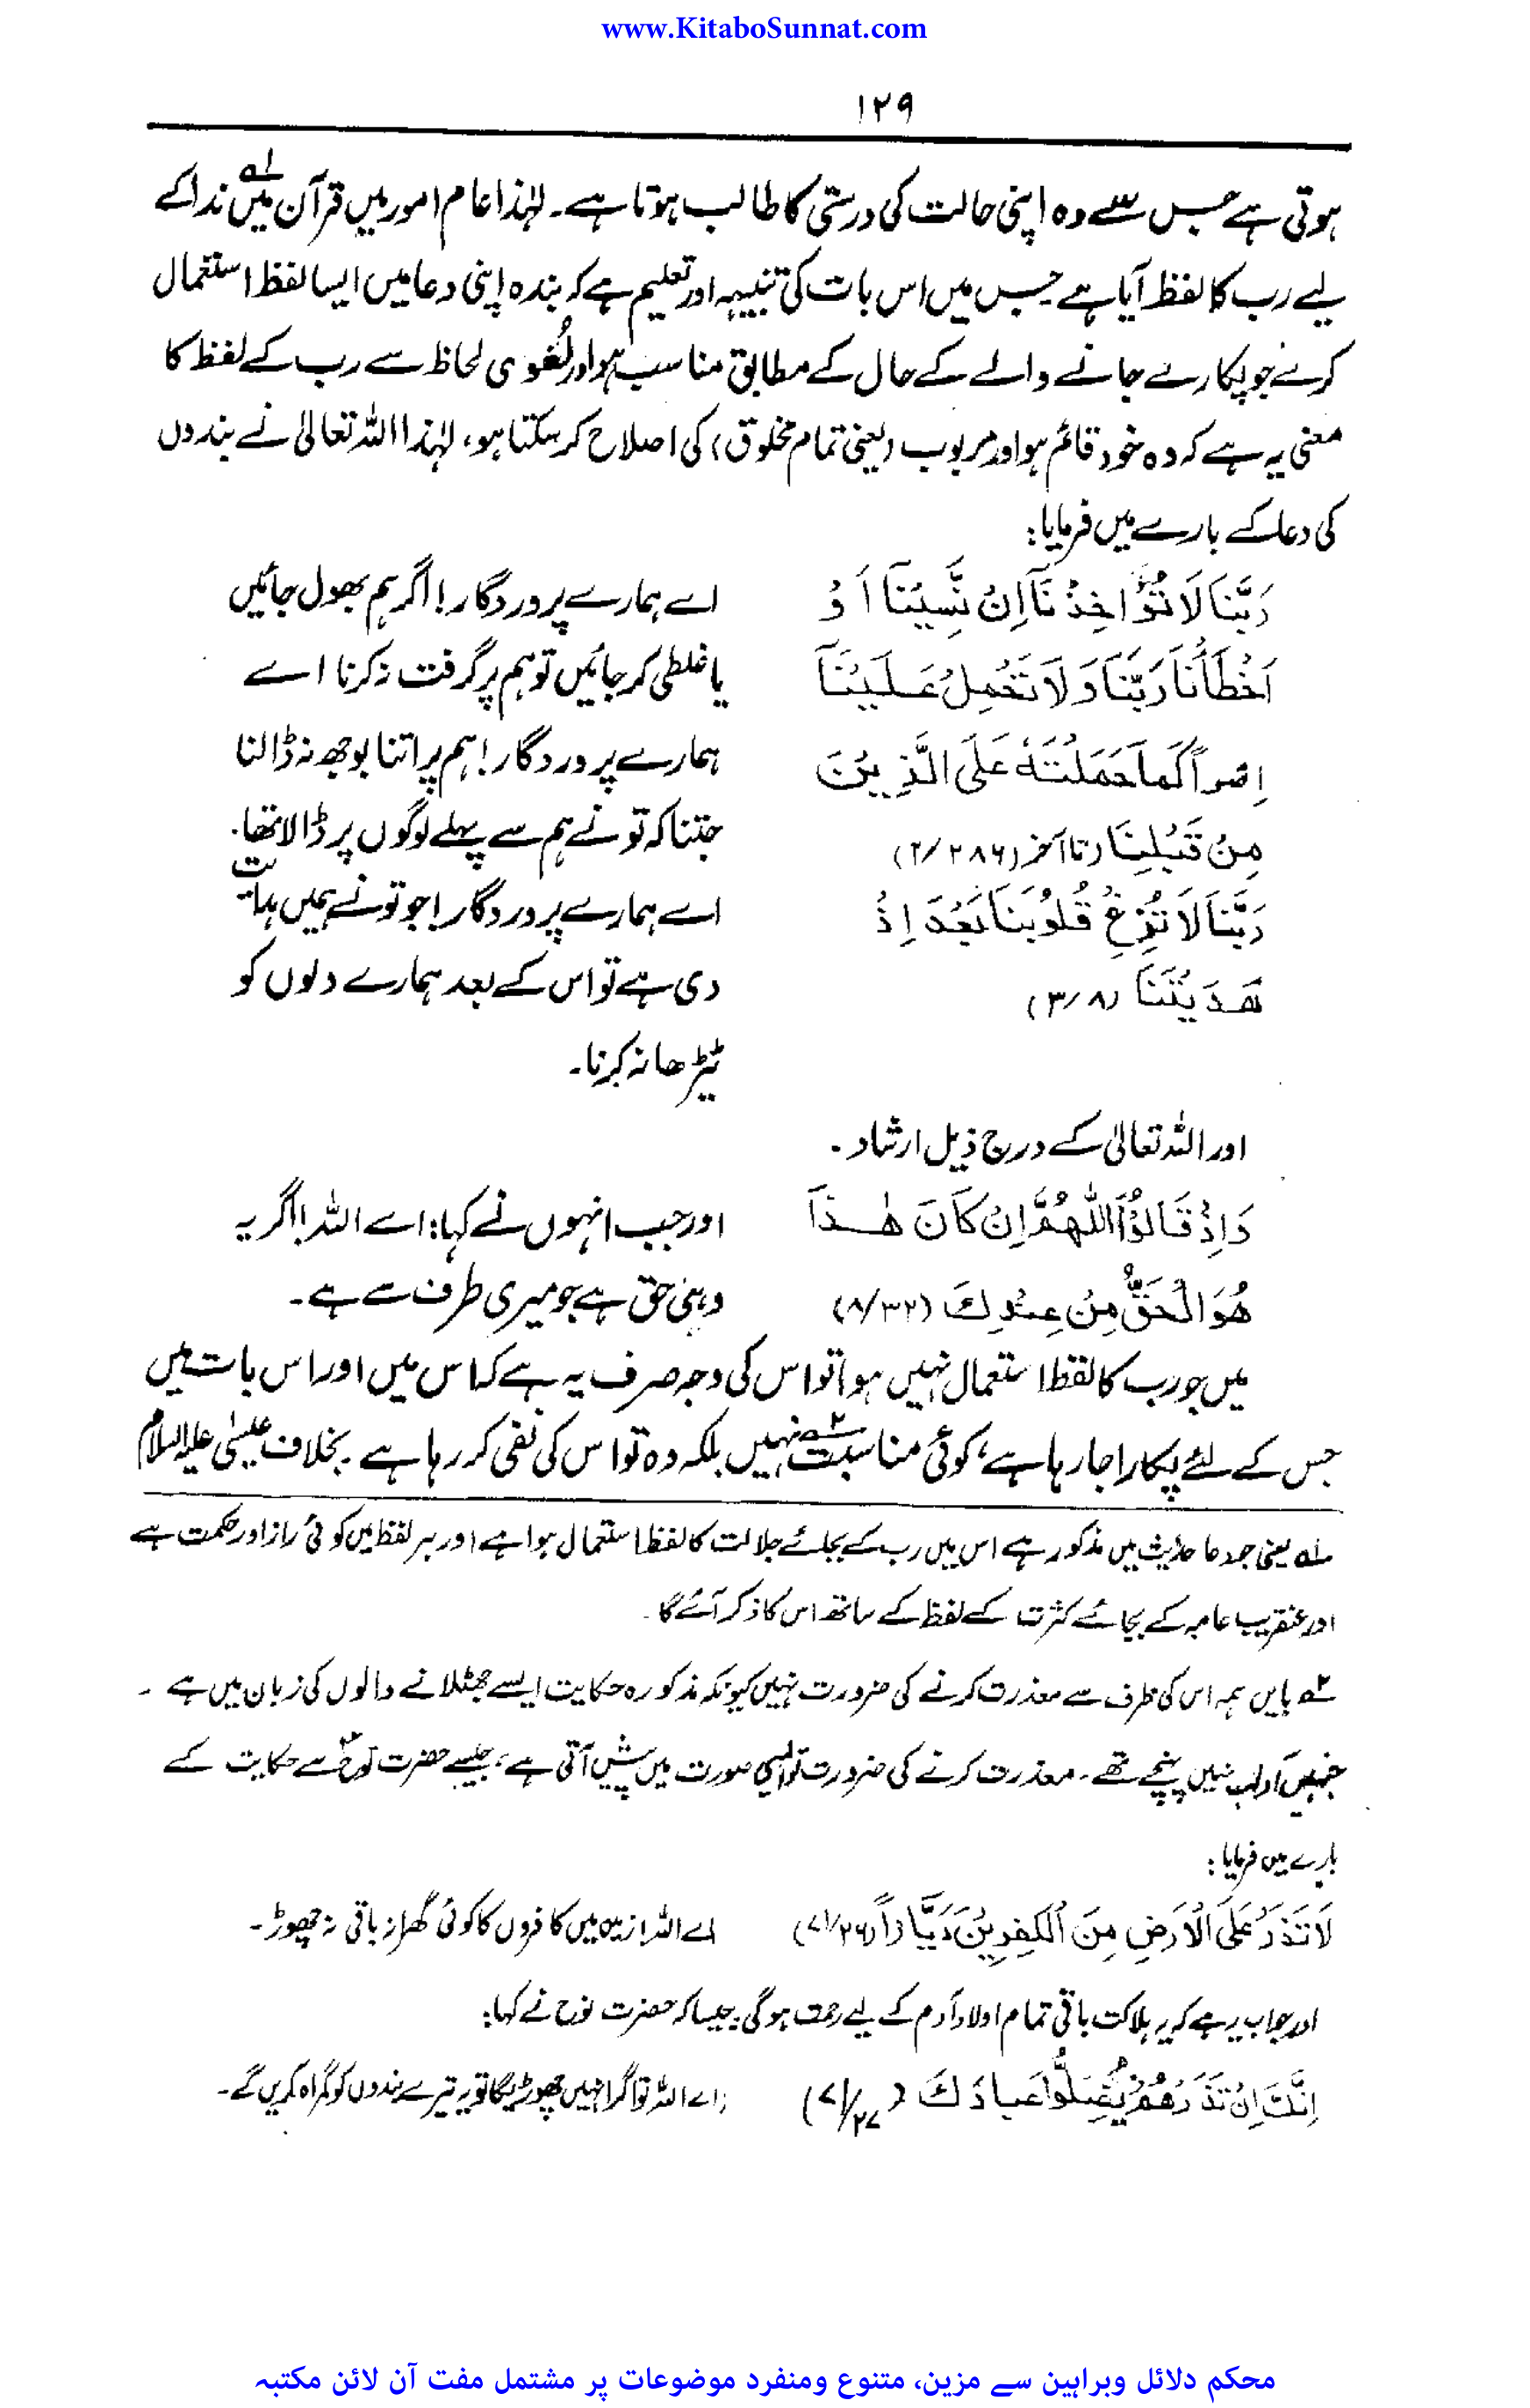 www.KitaboSunnat.com
۱۲۹
ہوتی ہے جس سے وہ اپنی حالت کی درستی کا طالب ہوتا ہے۔ لہٰذا عام امور میں قرآن میں ۱؎ ندا کے
لیے رب کا لفظ آیا ہے جس میں اس بات کی تنبیہہ اور تعلیم ہے کہ بندہ اپنی دعا میں ایسا لفظ استعمال
کرے جو پکارے جانے والے کے حال کے مطابق مناسب ہو اور لُغوی لحاظ سے رب کے لفظ کا
معنی یہ ہے کہ وہ خود قائم ہو اور مربوب (یعنی تمام مخلوق) کی اصلاح کر سکتا ہو، لہٰذا اللہ تعالیٰ نے بندوں
کی دعا کے بارے میں فرمایا:
رَبَّنَا لَا تُؤَاخِذْنَآ اِنْ نَّسِيْنَآ اَوْ
اَخْطَأْنَا رَبَّنَا وَلَا تَحْمِلْ عَلَيْنَآ
اِصْراً كَمَا حَمَلْتَهٗ عَلَى الَّذِيْنَ
مِنْ قَبْلِنَا (تا آخر (۲/۲۸۶)
رَبَّنَا لَا تُزِغْ قُلُوْبَنَا بَعْدَ اِذْ
هَدَيْتَنَا (۳/۸)
اے ہمارے پروردگار! اگر ہم بھول جائیں
یا غلطی کر جائیں تو ہم پر گرفت نہ کرنا اے
ہمارے پروردگار! ہم پر اتنا بوجھ نہ ڈالنا
جتنا کہ تو نے ہم سے پہلے لوگوں پر ڈالا تھا۔
اے ہمارے پروردگار! جو تو نے ہمیں ہدایت
دی ہے تو اس کے بعد ہمارے دلوں کو
ٹیڑھا نہ کرنا۔
اور اللہ تعالیٰ کے درج ذیل ارشاد۔
وَاِذْ قَالُوْا اللّٰهُمَّ اِنْ كَانَ هٰذَآ
هُوَ الْحَقُّ مِنْ عِنْدِكَ (۸/۳۲)
اور جب انہوں نے کہا: اے اللہ! اگر یہ
وہی حق ہے جو میری طرف سے ہے۔
میں جو رب کا لفظ استعمال نہیں ہوا تو اس کی وجہ صرف یہ ہے کہ اس میں اور اس بات میں
جس کے لئے پکارا جا رہا ہے، کوئی مناسبت ۲؎ نہیں بلکہ وہ تو اس کی نفی کر رہا ہے۔ بخلاف عیسٰی علیہ السلام
۱؎ یعنی جو دعا حدیث میں مذکور ہے اس میں رب کے بجائے جلالت کا لفظ استعمال ہوا ہے اور ہر لفظ میں کوئی راز اور حکمت ہے
اور عنقریب عامہ کے بجائے کثرت کے لفظ کے ساتھ اس کا ذکر آئے گا۔
۲؎ بایں ہمہ اس کی طرف سے معذرت کرنے کی ضرورت نہیں کیونکہ مذکورہ حکایت ایسے جھٹلانے والوں کی زبان میں ہے ۔
جنہیں آداب نہیں پہنچے تھے۔ معذرت کرنے کی ضرورت تو ایسی صورت میں پیش آتی ہے، جیسے حضرت نوحؑ سے حکایت کے
بارے میں فرمایا:
لَا تَذَرْ عَلَى الْاَرْضِ مِنَ الْكٰفِرِيْنَ دَيَّاراً (۷۱/۲۶)
اے اللہ! زمین میں کافروں کا کوئی گھرانہ باقی نہ چھوڑ۔
اور جواب یہ ہے کہ یہ ہلاکت باقی تمام اولاد آدم کے لیے رحمت ہوگی۔ جیسا کہ حضرت نوح نے کہا:
اِنَّكَ اِنْ تَذَرْهُمْ يُضِلُّوْا عِبَادَكَ (۷۱/۲۷)
(اے اللہ تو اگر انہیں چھوڑیگا تو یہ تیرے بندوں کو گمراہ کریں گے۔
محکم دلائل وبراہین سے مزین، متنوع ومنفرد موضوعات پر مشتمل مفت آن لائن مکتبہ